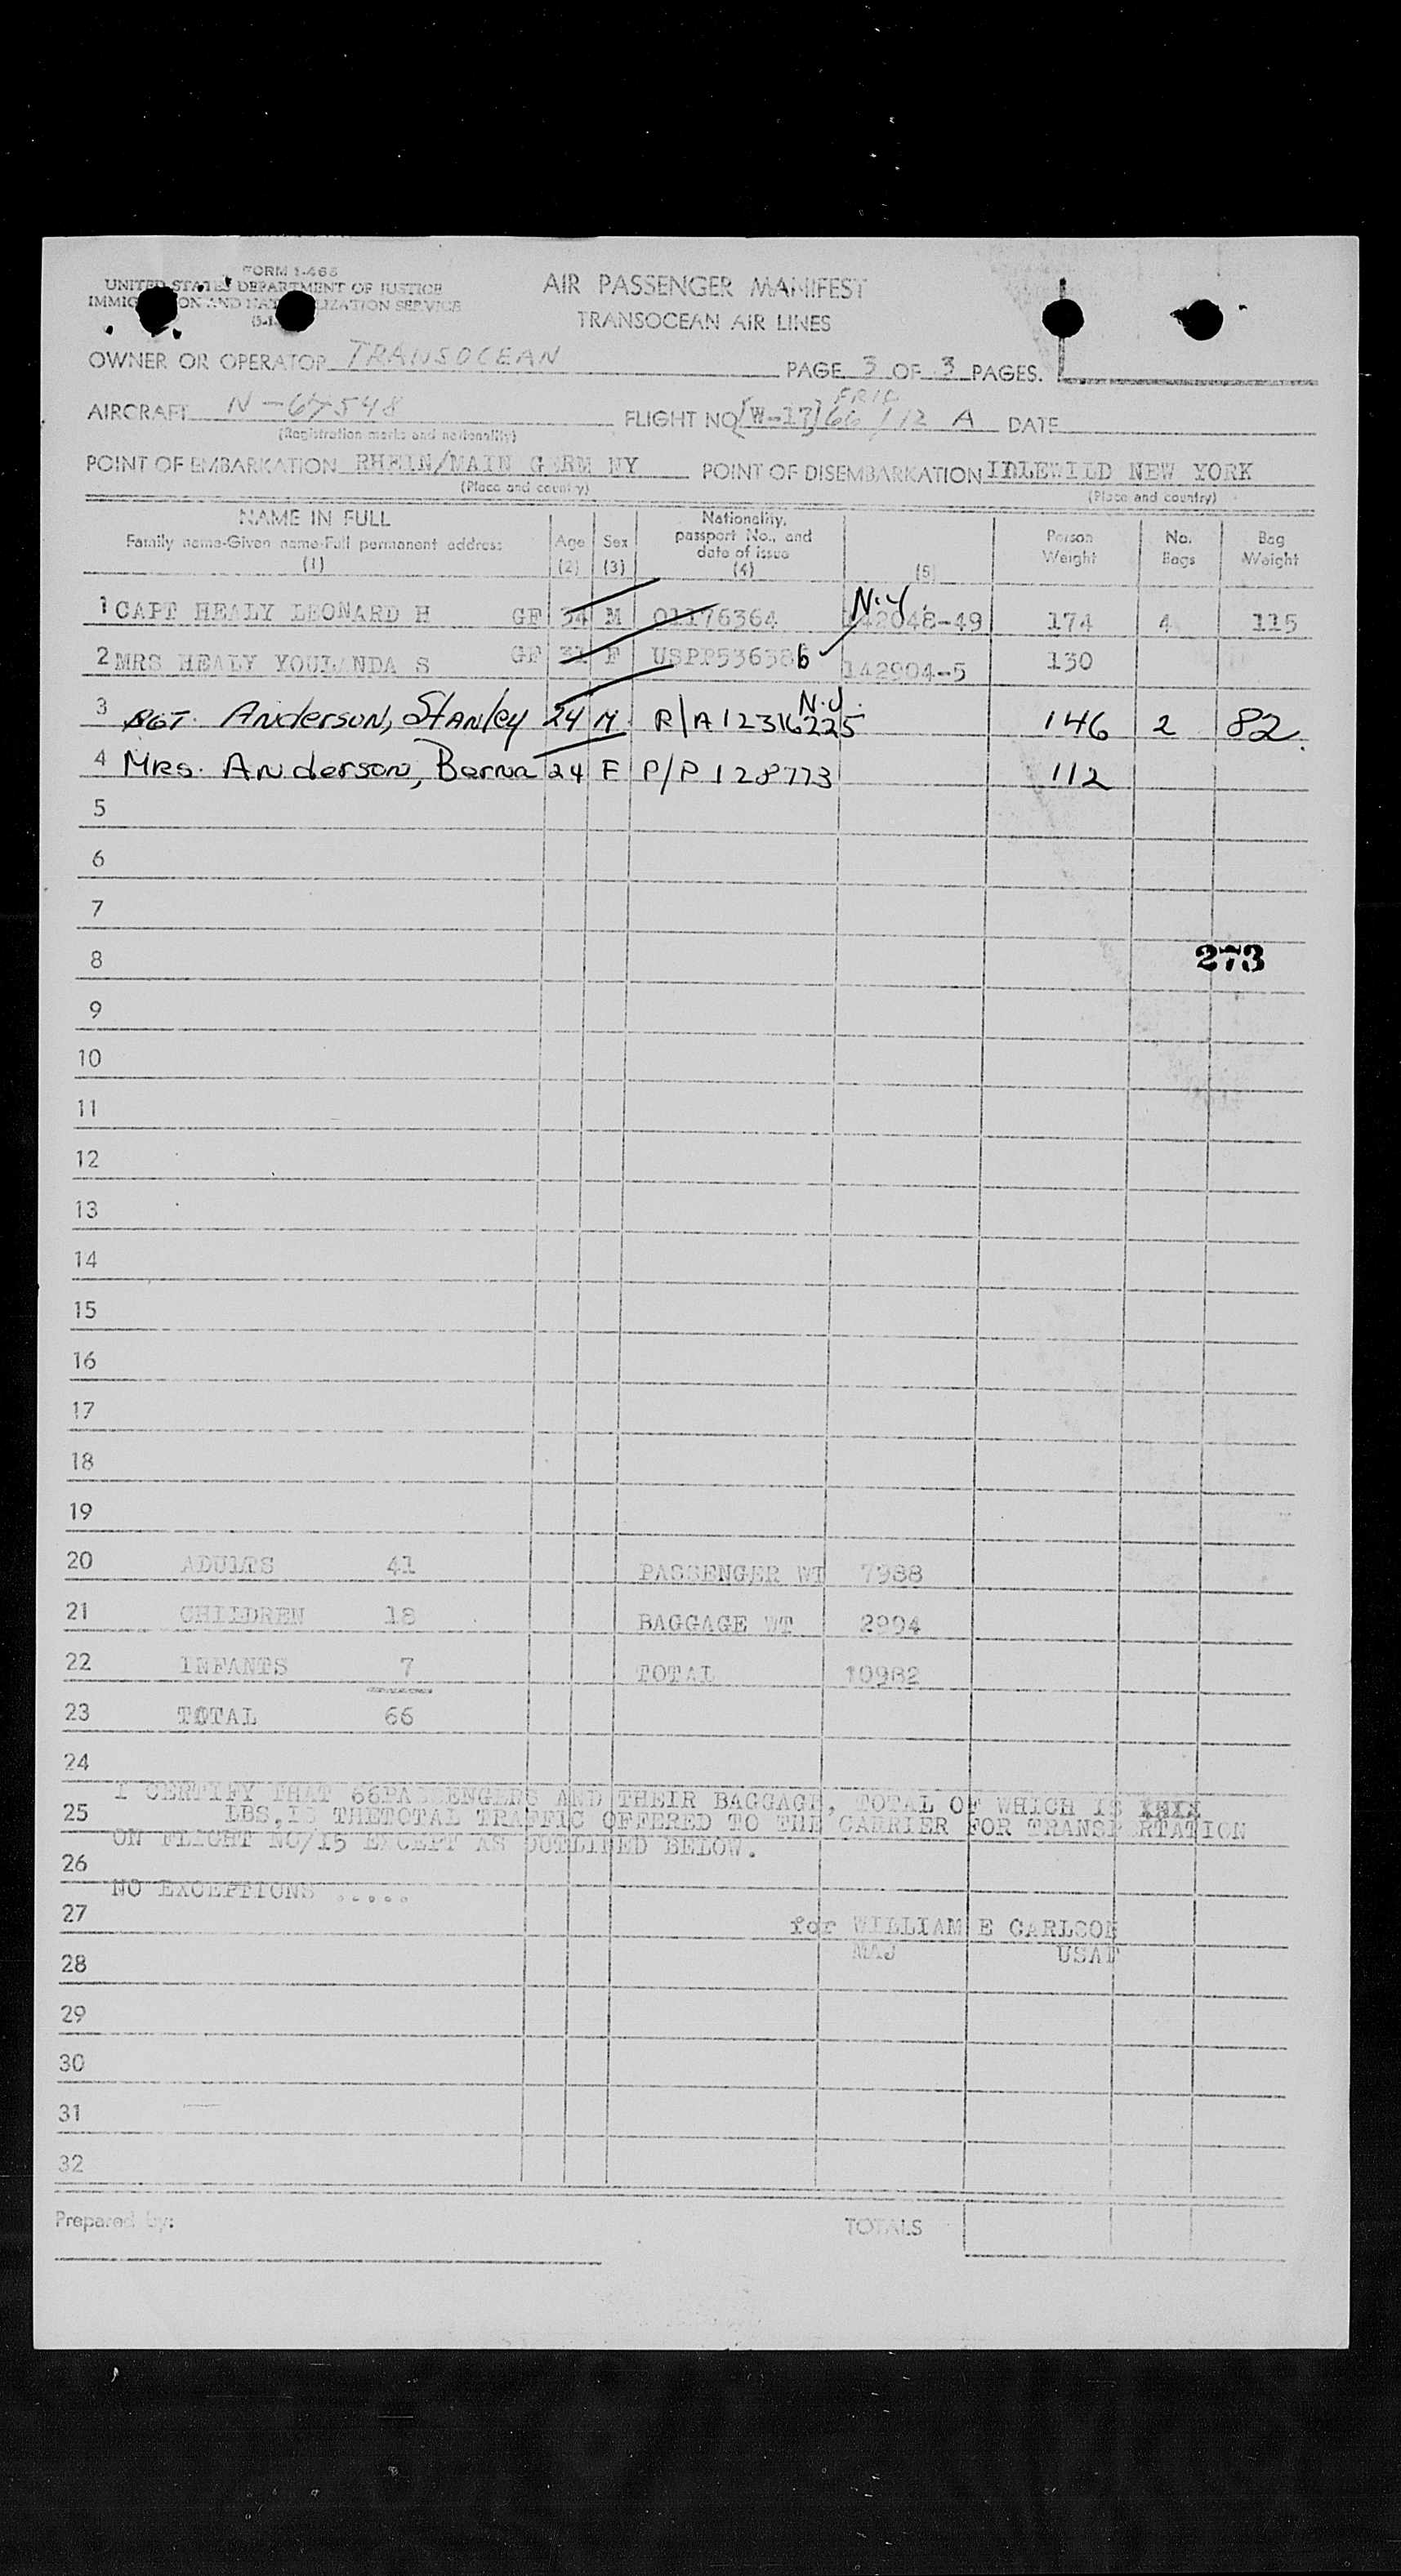 FORM I-466
UNITED STATES DEPARTMENT OF JUSTICE
IMMIGRATION AND NATURALIZATION SERVICE
AIR PASSENGER MANIFEST
TRANSOCEAN AIR LINES
OWNER OR OPERATOR TRANSOCEAN PAGE 3 OF 3 PAGES.
AIRCRAFT N-67548 FLIGHT NO [W-17] 66 / 112 A DATE
(Registration marks and nationality)
POINT OF EMBARKATION RHEIN/MAIN GERM NY POINT OF DISEMBARKATION IDLEWILD NEW YORK
(Place and country) (Place and country)
NAME IN FULL Family name-Given name-Full permanent address (1) Age (2) Sex (3) Nationality, passport No., and date of issue (4) (5) Person Weight No. Bags Bag Weight
N.Y.
1 CAPT HEALY LEONARD H GF 34 M 01176364 142048-49 174 4 115
2 MRS HEALY YOULANDA S GF 31 F USPP536386 142904-5 130
N.J.
3 SGT. Anderson, Stanley 24 M R/A 12316225 146 2 82
4 Mrs. Anderson, Berna 24 F P/P 128773 112
5
6
7
273
8
9
10
11
12
13
14
15
16
17
18
19
20 ADULTS 41 PASSENGER WT 7988
21 CHILDREN 18 BAGGAGE WT 2994
22 INFANTS 7 TOTAL 10982
23 TOTAL 66
24
I CERTIFY THAT 66PASSENGERS AND THEIR BAGGAGE, TOTAL OF WHICH IS
25 LBS,IS THETOTAL TRAFFIC OFFERED TO THE CARRIER FOR TRANSP RTATION
ON FLIGHT NO/15 EXCEPT AS OUTLINED BELOW.
26
NO EXCEPTIONS .....
27 for WILLIAM E CARLSON
28 MAJ USAF
29
30
31
32
Prepared by: TOTALS